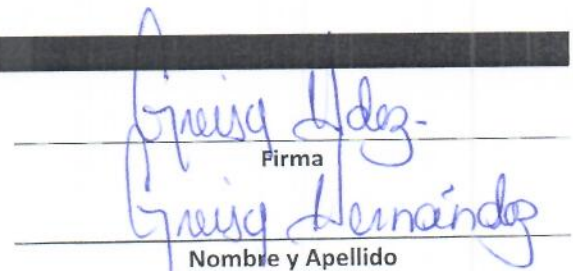 Greisy Hdez-
Firma
Greisy Hernández
Nombre y Apellido